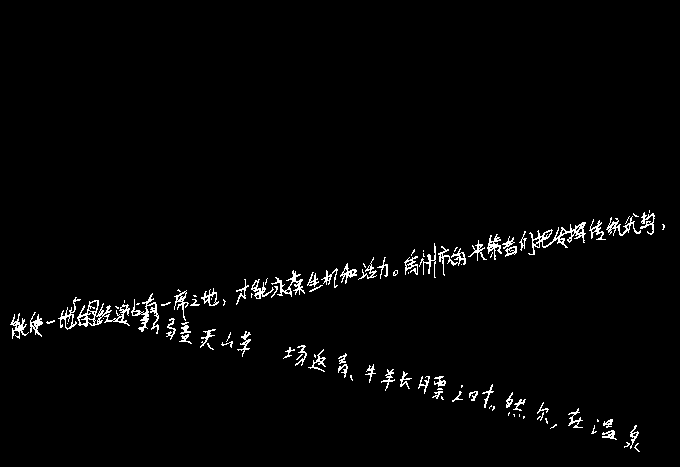 能使一地的经济占有一席之地，才能永葆生机和活力。禹州市的决策者们把发挥传统优势，
新疆天山草场返青、牛羊长膘之时。然尔，在温泉